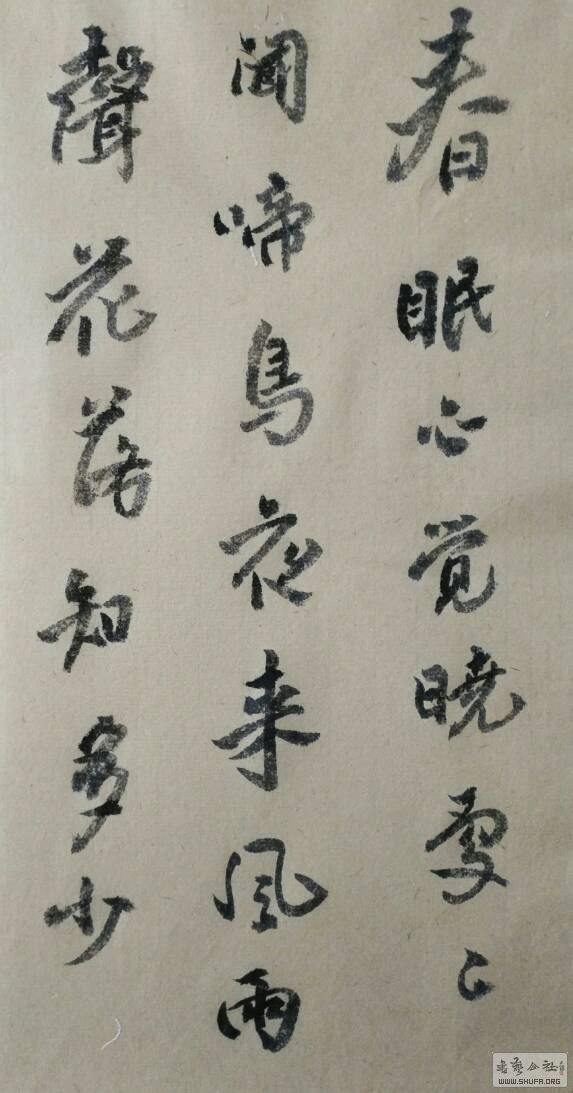 春眠不觉曉處々
聞啼鳥夜来風雨
聲花落知多少
書藝公社
WWW.SHUFA.ORG